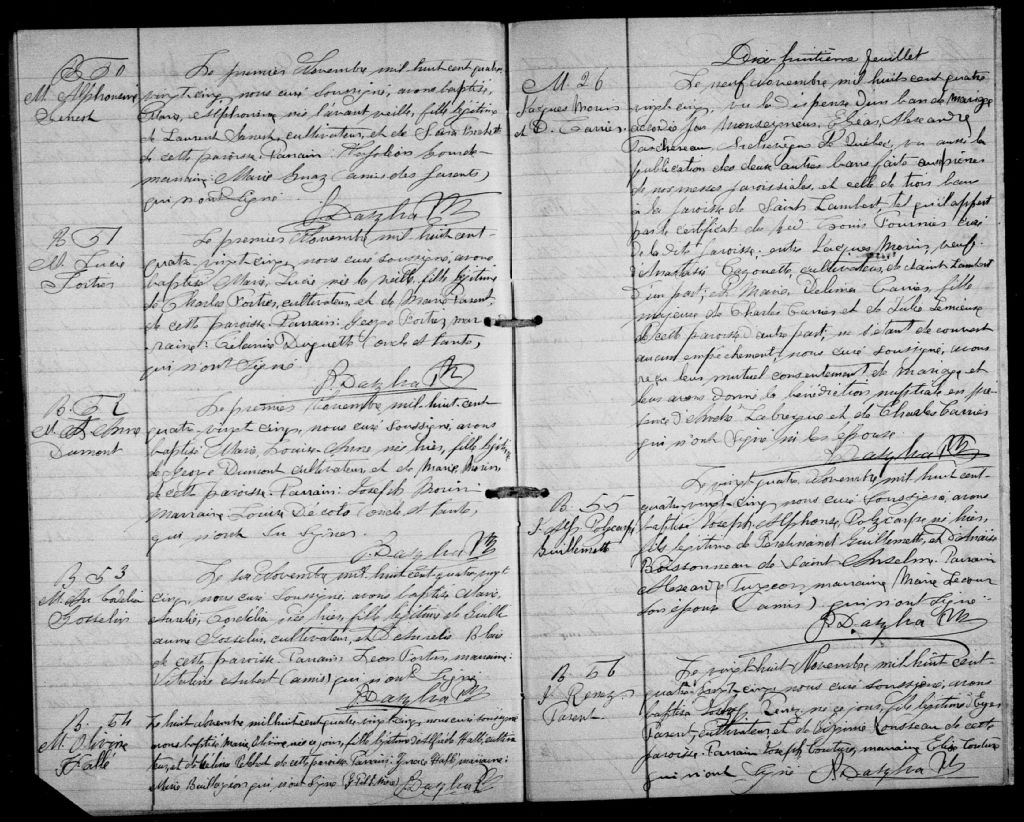 B 50
M. Alphonsine
Genest
Le premier Novembre mil huit cent quatre
vingt cinq, nous curé soussigné, avons baptisé,
Marie, Alphonsine née l'avant veille, fille légitime
de Laurent Genest, cultivateur, et de
de cette paroisse. Parrain: Napoléon
marraine: Marie (amis des parents)
qui n'ont signé.
B 51
M. Lucie
Fortier
Le premier Novembre mil huit cent
quatre vingt cinq, nous curé soussigné, avons
baptisé Marie, Lucie née la veille, fille légitime
de Charles Fortier, cultivateur, et de Marie Parent
de cette paroisse. Parrain: George Fortier, mar
raine: Célanire Duquette (oncle et tante,
qui n'ont signé
B. 52
M. L. Anne
Dumont
Le premier Novembre mil huit cent
quatre vingt cinq, nous curé soussigné, avons
baptisé Marie, Louise Anne née hier, fille légitime
de George Dumont cultivateur, et de Marie Morin,
de cette paroisse. Parrain: Joseph Morin
marraine: Louise (oncle et tante,
qui n'ont su signer.
B 53
M. Au Cordélia
Gosselin
Le six Novembre mil huit cent quatre vingt
cinq, nous curé soussigné, avons baptisé Marie,
Aurélie, Cordélia née hier, fille légitime de Guill
aume Gosselin, cultivateur, et D'Aurélie Blais
de cette paroisse. Parrain Léon Fortier, marraine:
Aubert (amis) qui n'ont signé
B. 54
M.
Hallé
Le huit Novembre mil huit cent quatre vingt cinq, nous curé soussigné
avons baptisé Marie née ce jour, fille légitime d'Alfred Hallé, cultiva
teur, et de de cette paroisse. Parrain: Ignace Hallé, marraine:
Marie qui n'ont signé
Dix huitième feuillet
M. 26
Jacques Morin
et D. Carrier
Le neuf Novembre mil huit cent quatre
vingt cinq, vu la dispense d'un ban de mariage
accordée par Monseigneur, Elzéar, Alexandre
Taschereau, Archevêque de Québec, vu aussi la
publication des deux autres bans faite aux prônes
de nos messes paroissiales, et celle de trois bans
à la paroisse de Saint Lambert tel qu'il appert
par le certificat de Louis Fournier curé
de la dite paroisse; entre Jacques Morin, veuf
d'Anastasie Cayouette, cultivateur, de Saint Lambert
d'un part; et Marie, Delima Carrier, fille
majeure de Charles Carrier et de Julie Lemieux
de cette paroisse d'autre part; ne s'étant découvert
aucun empêchement, nous curé soussigné, avons
reçu leur mutuel consentement de mariage, et
leur avons donné la bénédiction nuptiale en pré
sence d'André Labrecque et de Charles Carrier
qui n'ont signé ni les époux
B. 55
J. Alp Polycarpe
Guillemette
Le vingt quatre Novembre mil huit cent
quatre vingt cinq, nous curé soussigné, avons
baptisé Joseph, Alphonse, Polycarpe, né hier,
fils légitime de Ferdinand Guillemette, et d'Anaise
Boissonneau de Saint Anselm. Parrain
Turgeon, marraine, Marie
son épouse (amis) qui n'ont signé.
B 56
J. Rémy
Parent
Le vingt huit Novembre mil huit cent
quatre vingt cinq nous curé soussigné, avons
baptisé Joseph, Rémy, né ce jour, fils légitime
Parent, cultivateur, et de Rousseau de cette
paroisse. Parrain Joseph Couture, marraine Elise Couture
qui n'ont signé